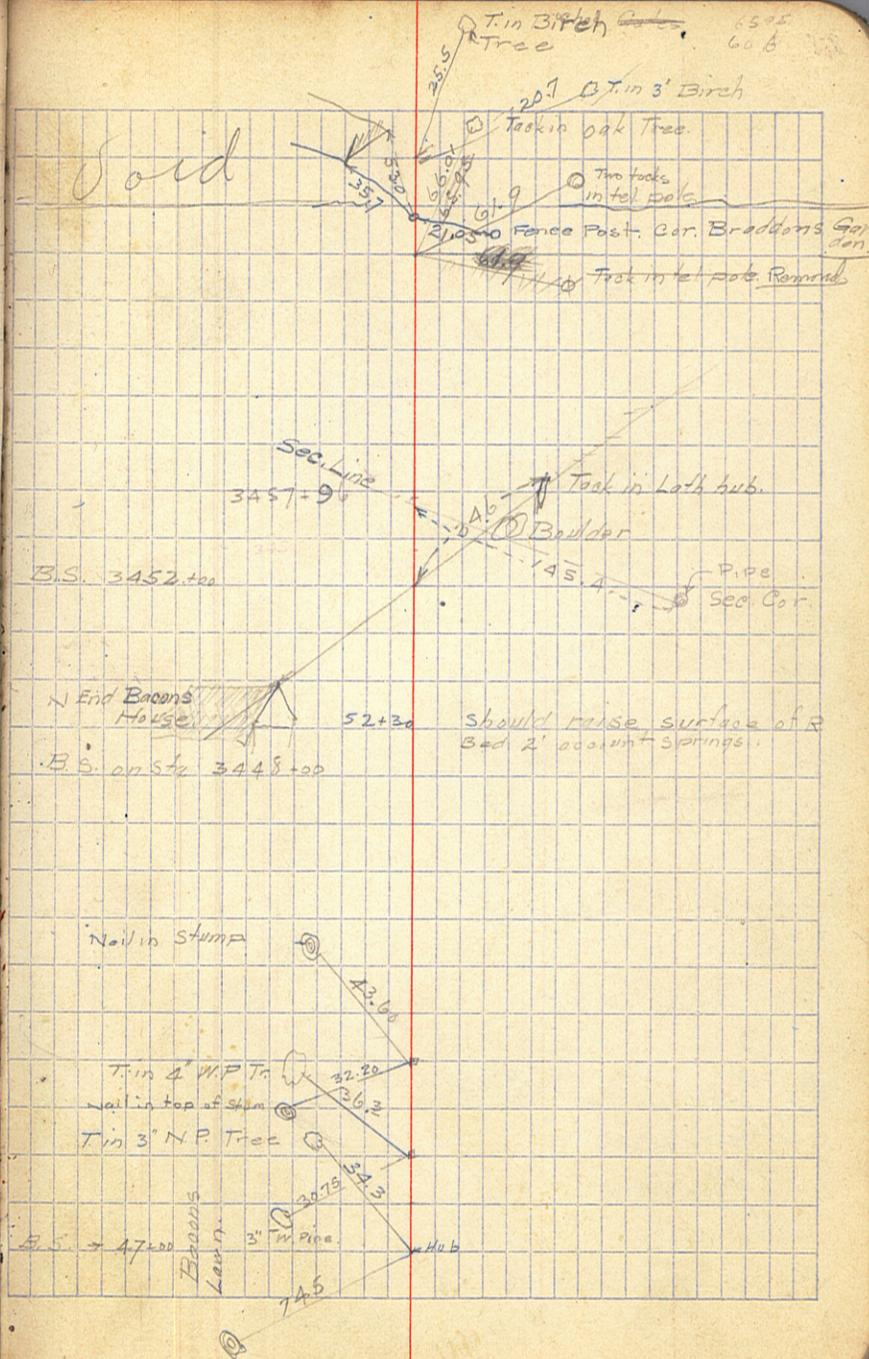 T. in Birch
Tree
25.5
20.7
T. in 3' Birch
Tack in oak Tree.
Void
35.7
53.0
66.01
Two tacks
in tel. pole
61.9
21.05
Fence Post. Cor. Braddons Gar
den
61.9
Tack in tel pole. Removed
Sec. Line
3457+96
Tack in Lath hub.
46
Boulder
B.S. 3452+00
145.4
Pipe
Sec. Cor.
N End Bacons
House
52+30
Should raise surface of R
Bed 2' account Springs.
B.S. on Sta 3448+00
Nail in Stump
43.60
T. in 4" W.P Tr.
32.20
36.2
Nail in top of Stum
T. in 3" N.P. Tree
34.3
30.75
Bacons
Lawn.
3" W. Pine.
B.S. → 47+00
Hub
74.5